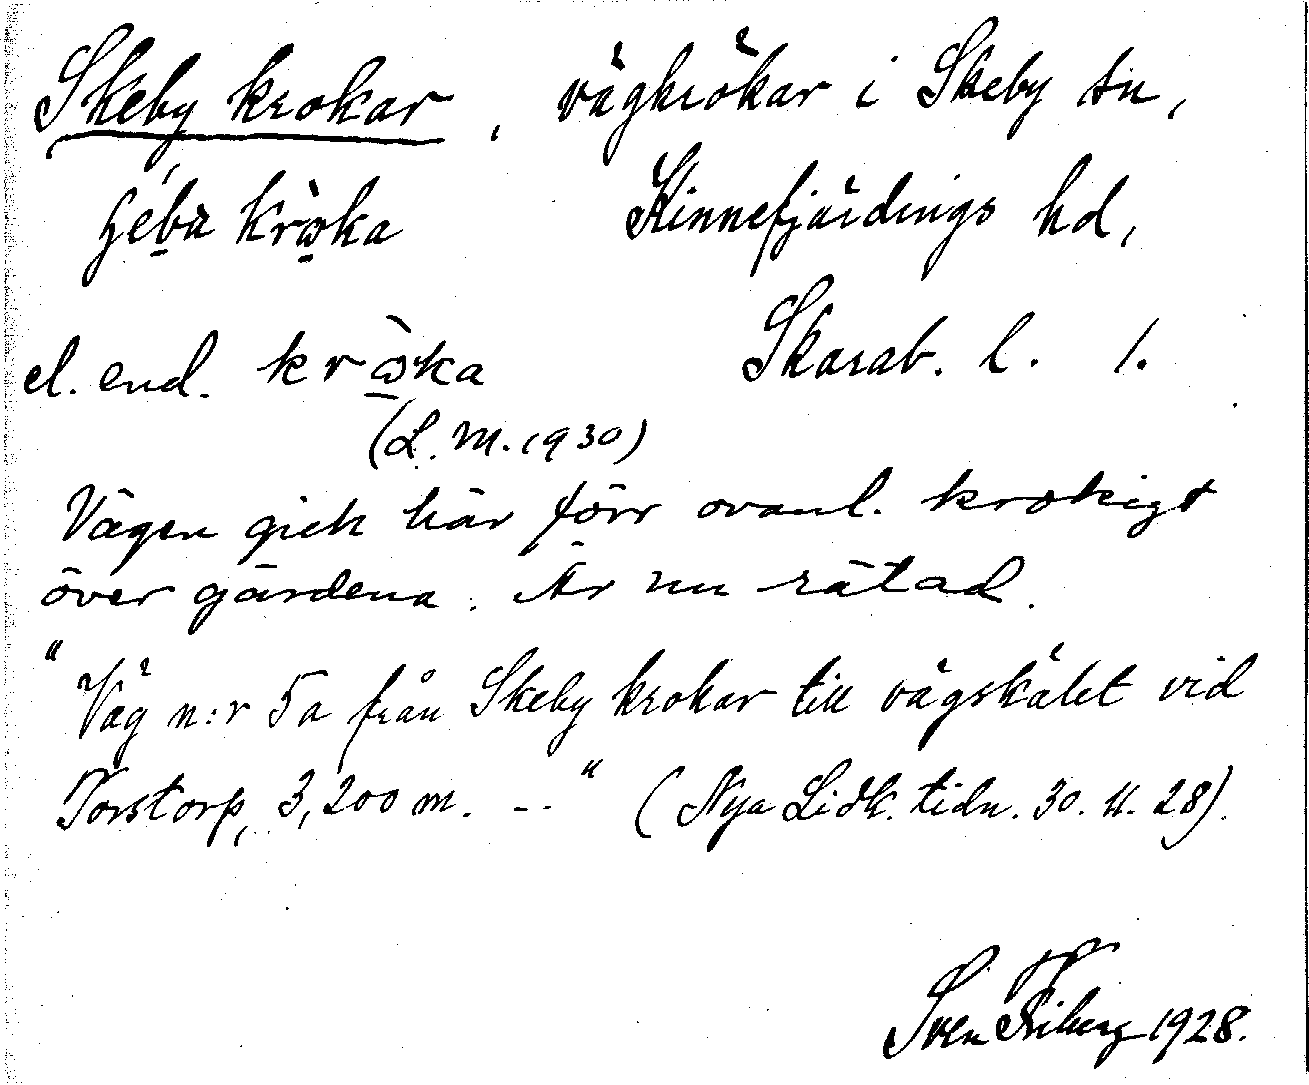 Skeby krokar, vägkrökar i Skeby sn,
krὼka Kinnefjärdings hd,
el. end. krὼka Skarab. l. 1.
(L. M. 1930)
Vägen gick här förr ovanl. krokigt
över gärdena. Är nu rätad.
"Väg n:r 5a från Skeby krokar till vägskälet vid
Torstorp, 3,200 m. --" (Nya Lidk. tidn. 30. 11. 28).
Sven Friberg 1928.